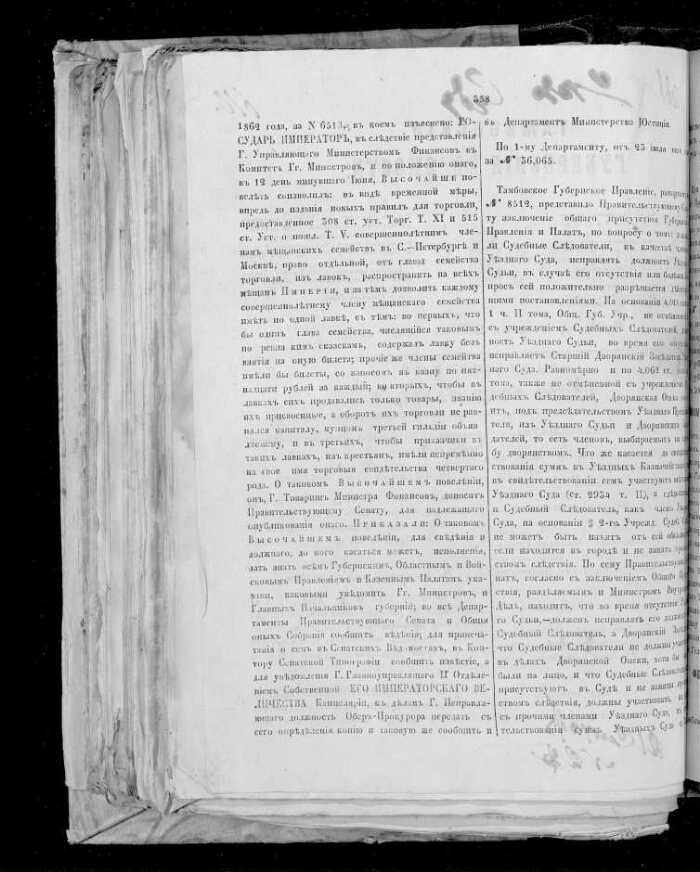 358
1862 года, за N 6513, въ коемъ изъяснено: ГО-
СУДАРЬ ИМПЕРАТОРЪ, въ слѣдствіе представленія
Г. Управляющаго Министерствомъ Финансовъ въ
Комитетъ Гг. Министровъ, и по положенію онаго,
въ 12 день минувшаго Іюня, ВЫСОЧАЙШЕ по-
велѣть соизволилъ: въ видѣ временной мѣры,
впредь до изданія новыхъ правилъ для торговли,
предоставленное 308 ст. уст. Торг. Т. XI и 515
ст. Уст. о пошл. Т. V. совершеннолѣтнимъ чле-
намъ мѣщанскихъ семействъ въ С.-Петербургѣ и
Москвѣ, право отдѣльной, отъ главы семейства
торговли, изъ лавокъ, распространить на всѣхъ
мѣщанъ Имперіи, и за тѣмъ дозволить каждому
совершеннолѣтнему члену мѣщанскаго семейства
имѣть по одной лавкѣ, съ тѣмъ: во первыхъ, что
бы одинъ глава семейства, числящійся таковымъ
по ревизскимъ сказкамъ, содержалъ лавку безъ
взятія на оную билета; прочіе же члены семейства
имѣли бы билеты, со взносомъ въ казну по пят-
надцати рублей за каждый; во вторыхъ, чтобы въ
лавкахъ сихъ продавались только товары, званію
ихъ присвоенные, а оборотъ ихъ торговли не рав-
нялся капиталу, купцомъ третьей гильдіи объяв-
ляемому, и въ третьихъ, чтобы прикащики въ
такихъ лавкахъ, изъ крестьянъ, имѣли непремѣнно
на свое имя торговыя свидѣтельства четвертаго
рода. О таковомъ ВЫСОЧАЙШЕМЪ повелѣніи,
онъ, Г. Товарищъ Министра Финансовъ, доноситъ
Правительствующему Сенату, для надлежащаго
опубликованія онаго. ПРИКАЗАЛИ: О таковомъ
ВЫСОЧАЙШЕМЪ повелѣніи, для свѣденія и
должнаго, до кого касаться можетъ, исполненія,
дать знать всѣмъ Губернскимъ, Областнымъ и Вой-
сковымъ Правленіямъ и Казеннымъ Палатамъ ука-
зами, каковыми увѣдомить Гг. Министровъ, и
Главныхъ Начальниковъ губерній; во всѣ Депар-
таменты Правительствующаго Сената и Общія
оныхъ Собранія сообщить вѣдѣнія; для припеча-
танія о семъ въ Сенатскихъ Вѣдомостяхъ, въ Кон-
тору Сенатской Типографіи сообщить извѣстіе, а
для увѣдомленія Г. Главноуправляющаго II Отдѣле-
ніемъ Собственной ЕГО ИМПЕРАТОРСКАГО ВЕ-
ЛИЧЕСТВА Канцеляріи, къ дѣламъ Г. Исправля-
ющаго должность Оберъ-Прокурора передать съ
сего опредѣленія копію и таковую же сообщить и
въ Департаментъ Министерства Юстиціи.
По 1-му Департаменту, отъ 25 іюля
за № 36,065.
Тамбовское Губернское Правленіе,
№ 8512, представило Правительствующему
заключеніе общаго присутствія Губерн
Правленія и Палатъ, по вопросу о томъ
ли Судебные Слѣдователи, въ качествѣ
Уѣзднаго Суда, исправлять должность
Судьи, въ случаѣ его отсутствія или
просъ сей положительно разрѣшается
щими постановленіями. На основаніи
1 ч. II тома, Общ. Губ. Учр., не
съ учрежденіемъ Судебныхъ Слѣдователей,
ность Уѣзднаго Судьи, во время его
исправляетъ Старшій Дворянскій
наго Суда. Равномѣрно и по 4,062 ст.
тома, также не отмѣненной съ
дебныхъ Слѣдователей, Дворянская
итъ, подъ предсѣдательствомъ Уѣзднаго
теля, изъ Уѣзднаго Судьи и Дворянскихъ
дателей, то есть членовъ, выбираемыхъ
бу дворянствомъ. Что же касается до
ствованія суммъ въ Уѣздныхъ Казначей
въ свидѣтельствованіи семъ участвуютъ
Уѣзднаго Суда (ст. 2934 т. II), а
и Судебный Слѣдователь, какъ членъ
Суда, на основаніи § 2-го, Учрежд. Суд.
не можетъ быть изъятъ отъ сей
если находится въ городѣ и не занятъ
ствомъ слѣдствія. По сему Правительству
натъ, согласно съ заключеніемъ Общаго
ствія, раздѣляемымъ и Министромъ
Дѣлъ, находитъ, что во время отсутствія
го Судьи,—долженъ исправлять его
Судебный Слѣдователь, а Дворянскій
что Судебные Слѣдователи не должны
въ дѣлахъ Дворянской Опеки, хотя бы
были на лицо, и что Судебные Слѣдователи
присутствуютъ въ Судѣ и не заняты
ствомъ слѣдствія, должны участвовать,
съ прочими членами Уѣзднаго Суда,
тельствованіи суммъ Уѣздныхъ